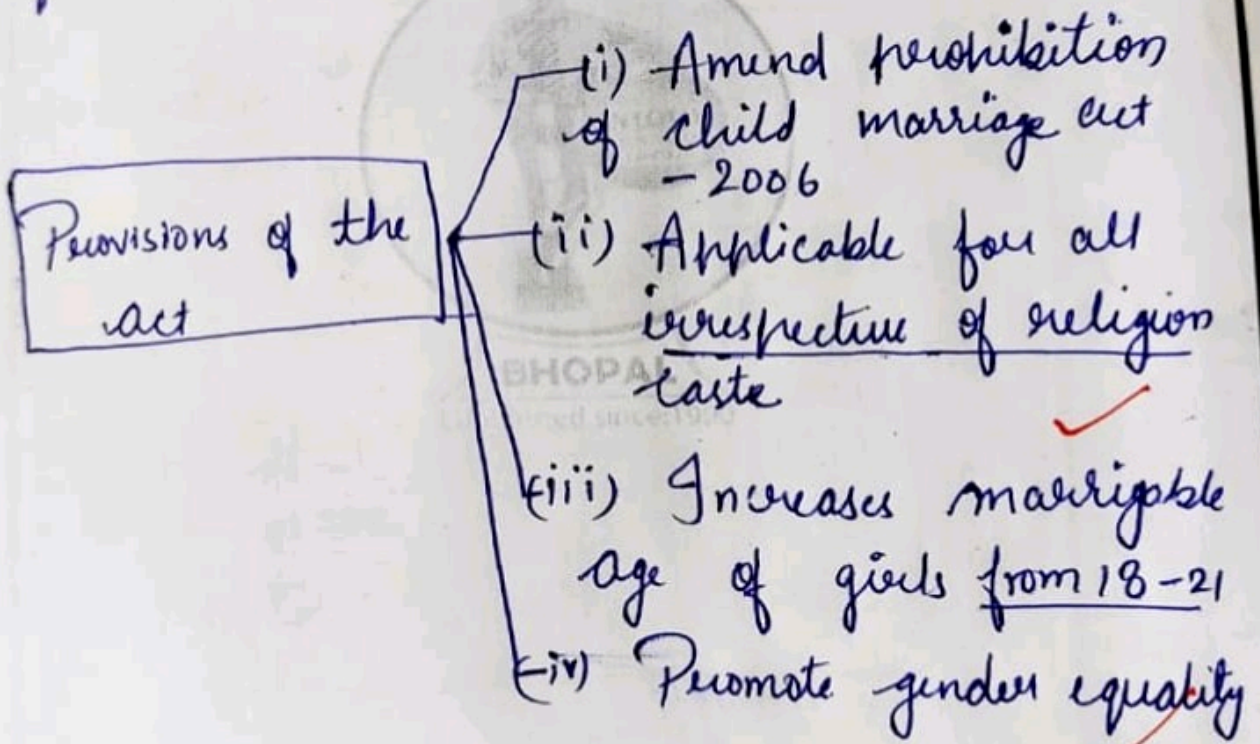 Provisions of the
act
(i) Amend prohibition
of child marriage act
- 2006
(ii) Applicable for all
irrespective of religion
caste
(iii) Increases marrigable
age of girls from 18-21
(iv) Promote gender equality
BHOPAL